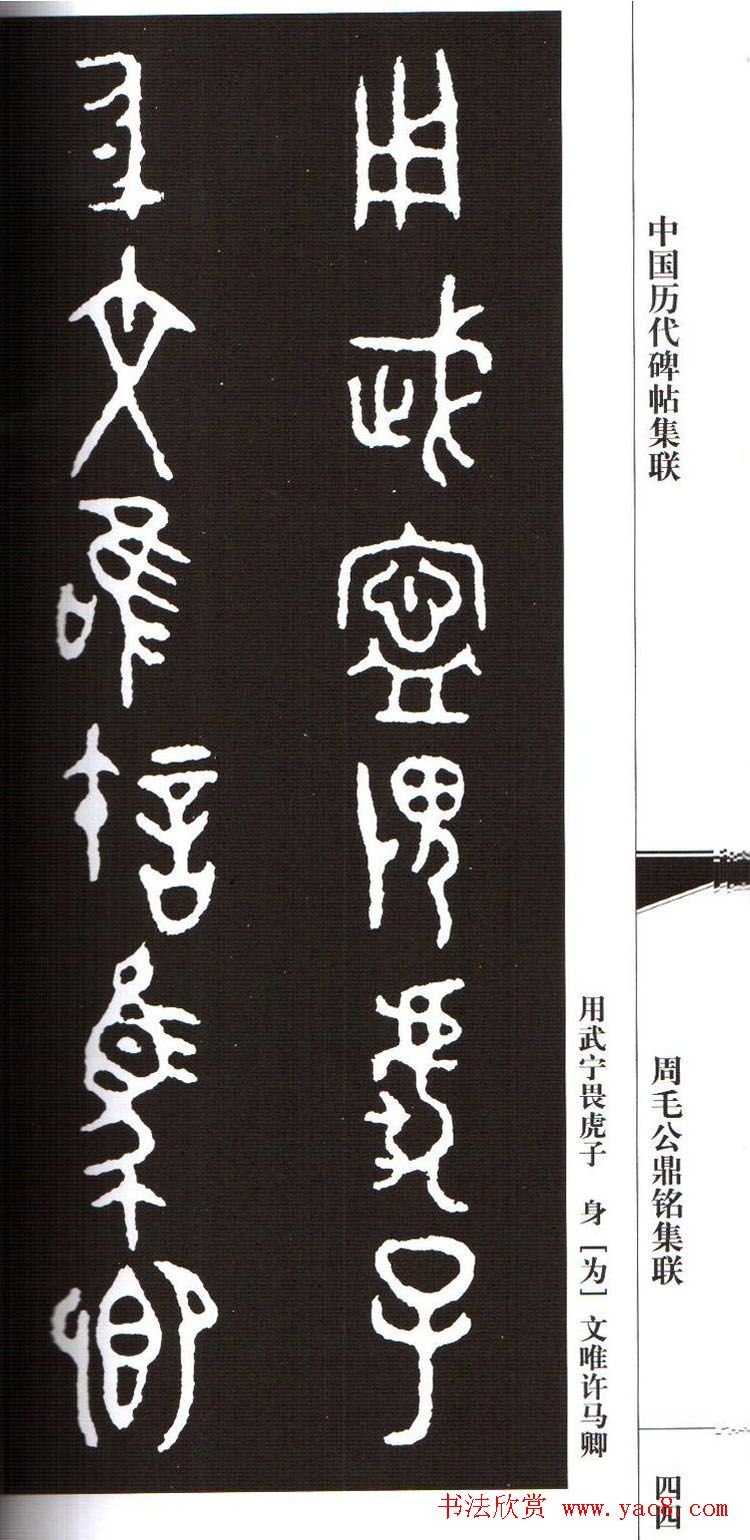 中国历代碑帖集联
周毛公鼎铭集联
四四
用武宁畏虎子 身［为］文唯许马卿
用武寍畏虎子
身文唯許馬卿
书法欣赏 www.yac8.com